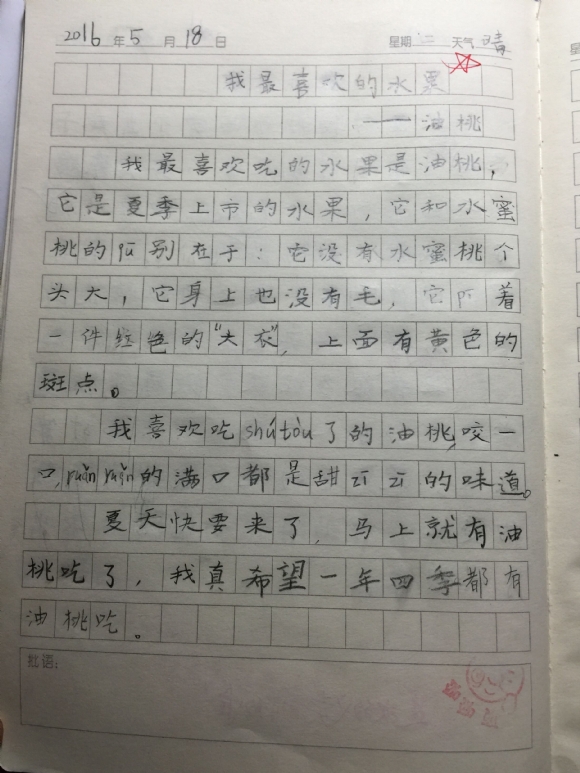 2016年5月18日 星期二 天气 晴
我最喜吹的水果
——油桃
我最喜欢吃的水果是油桃，
它是夏季上市的水果，它和水蜜
桃的qū别在于：它没有水蜜桃个
头大，它身上也没有毛，它 着
一件红色的"大衣"，上面有黄色的
斑点。
我喜欢吃shútòu了的油桃,咬一
口,ruǎn ruǎn的满口都是甜zī zī的味道。
夏天快要来了，马上就有油
桃吃了，我真希望一年四季都有
油桃吃。
批语：